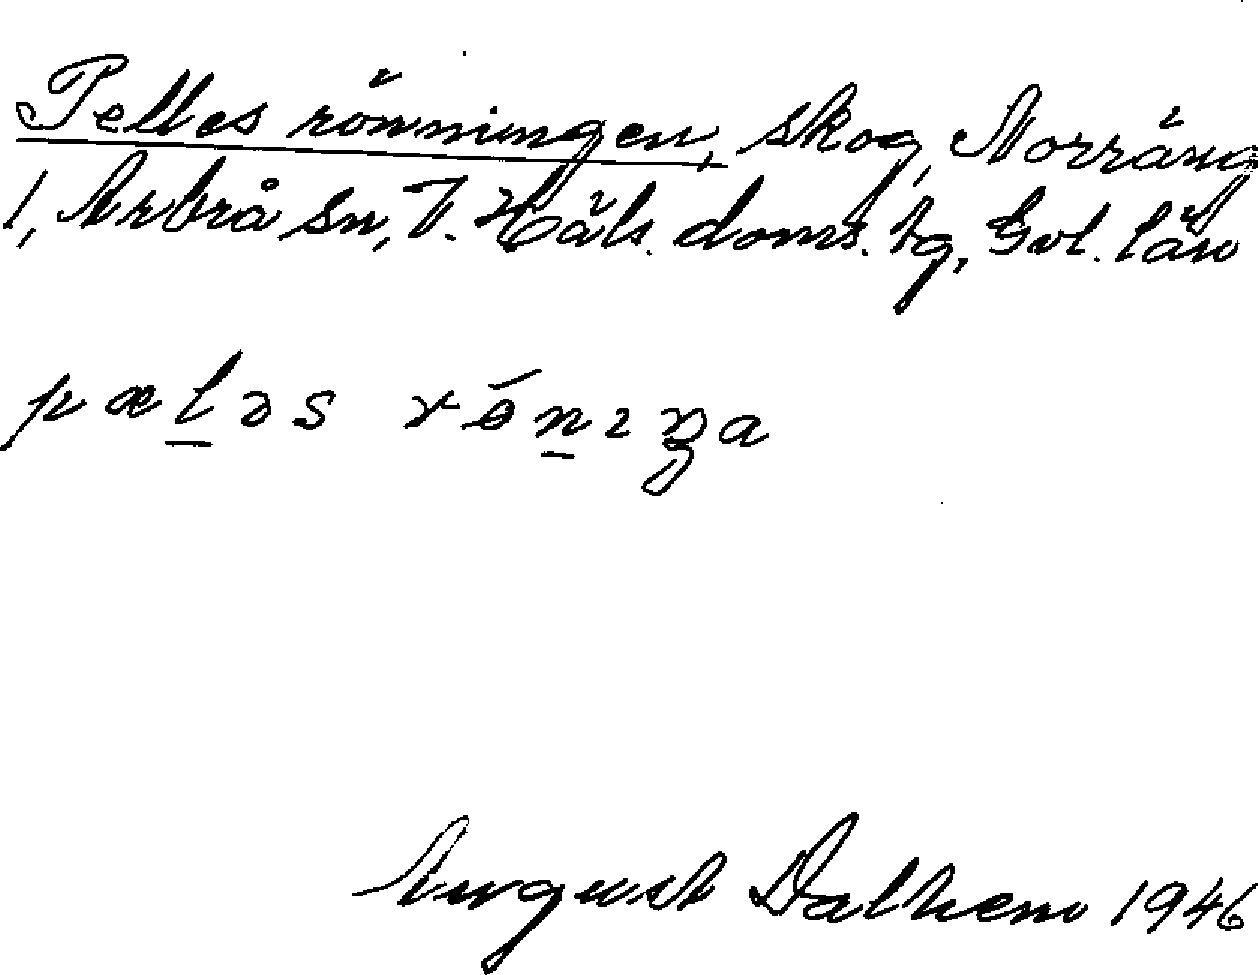 Pelles rönningen, skog, Norräng
1, Arbrå sn, V. Häls. doms. tg, Gvl. län
pæləs rǿnıŋa
August Dalhem 1946